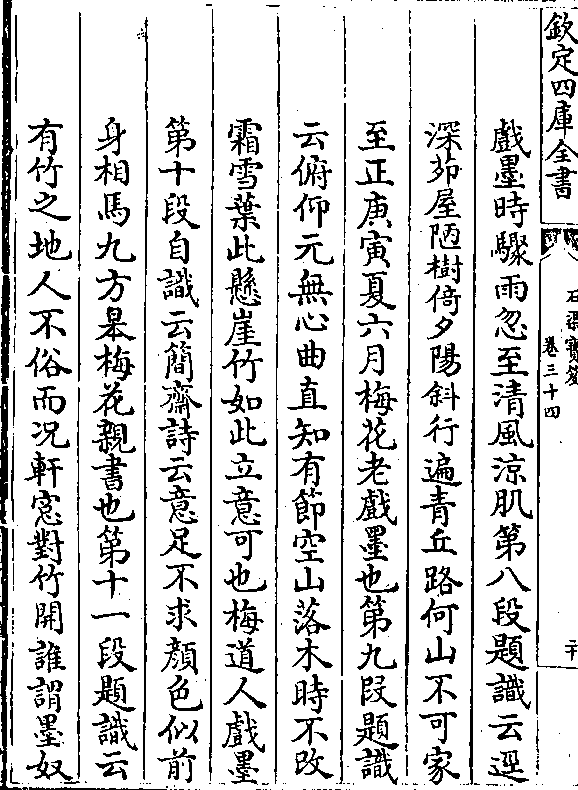 欽定四庫全書
石渠寶笈
卷三十四
二十
戲墨時驟雨忽至清風涼肌第八段題識云逕
深茆屋陋樹倚夕陽斜行遍青丘路何山不可家
至正庚寅夏六月梅花老戲墨也第九段題識
云俯仰元無心曲直知有節空山落木時不改
霜雪葉此懸崖竹如此立意可也梅道人戲墨
第十段自識云簡齋詩云意足不求顏色似前
身相馬九方皋梅花親書也第十一段題識云
有竹之地人不俗而況軒窓對竹開誰謂墨奴